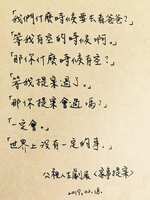 「我們什麼時候要去看爸爸？」
「等我有空的時候啊。」
「那你什麼時候有空？」
「等我提案過了。」
「那你提案會過嗎？」
「一定會。」
「世界上沒有一定的事。」
公視人生劇展《家事提案》
2019.02.18.